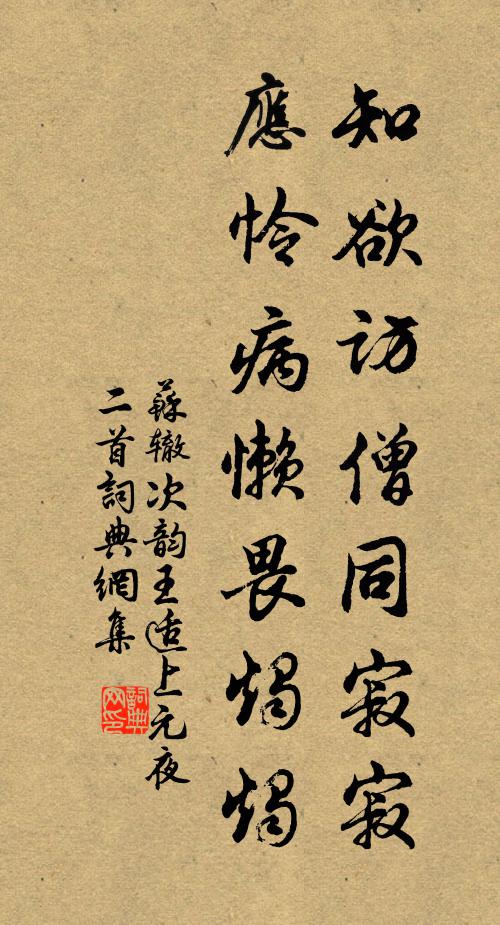 知欲访僧同寂寂
應怜病懒畏燭燭
蘇辙次韵王适上元夜
二首詞典網集
詞典网印